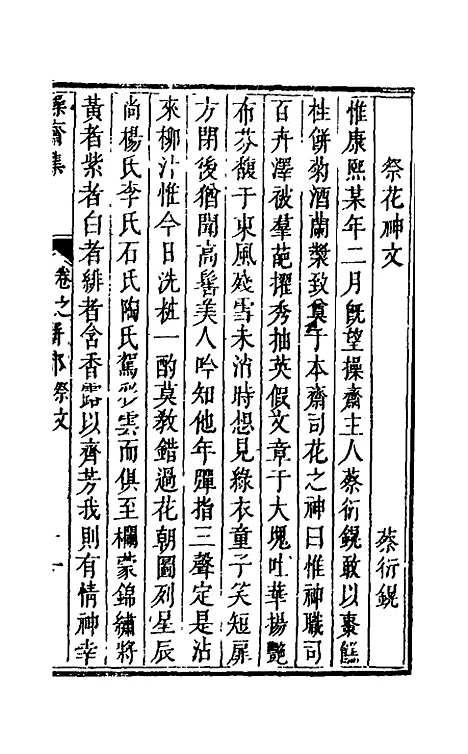 祭花神文
蔡衍鎤
惟康熙某年二月旣望操齋主人蔡衍鎤敢以棗䭔
桂餅菊酒蘭漿致奠于本齋司花之神曰惟神職司
百卉澤被羣葩擢秀抽英假文章于大塊吐華揚艷
布芬馥于東風殘雪未消時想見綠衣童子笑短扉
方閉後猶聞高髻美人吟知他年彈指三聲定是沾
來柳汁惟今日洗粧一酌莫教錯過花朝圖列星辰
尚楊氏李氏石氏陶氏駕彩雲而俱至欄蒙錦繡將
黃者紫者白者緋者含香露以齊芳我則有情神幸
操齋集
卷之 祭文